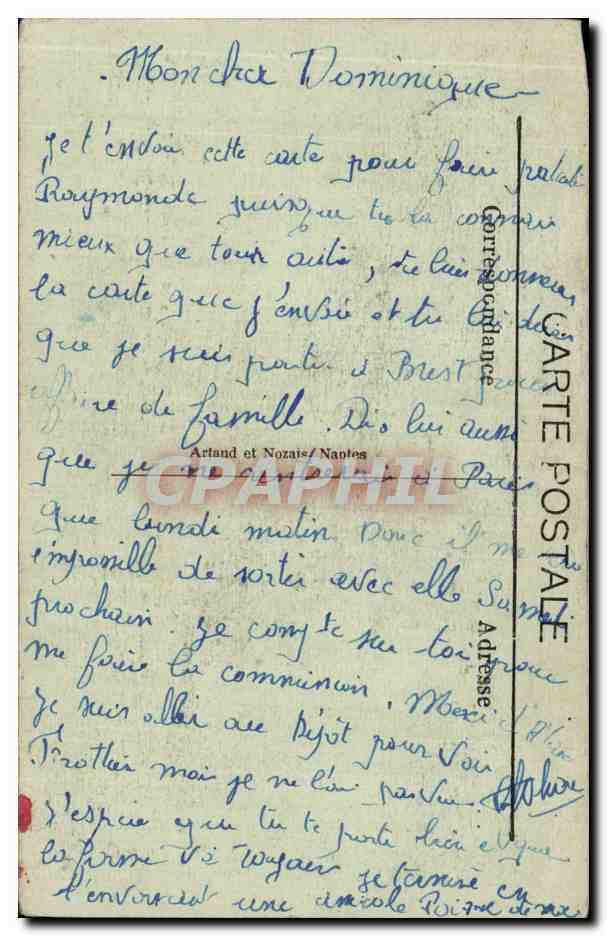 Mon cher Dominique
Je t'envoie cette carte pour faire
Raymonde puisque tu la connais
mieux que tout autre, tu lui donneras
la carte que j'envoie et tu lui diras
que je suis parti à Brest pour
de famille. Dis lui aussi
que je ne rentrerai à Paris
que lundi matin Donc il m'est
impossible de sortir avec elle Samedi
prochain. Je compte sur toi pour
me faire la commission. Merci
Je suis aller au Dépôt pour voir
Trottier mais je ne l'ai pas vu.
J'espère que tu te porte bien et que
la forme va toujours je termine en
t'envoyant une amicale Poignée de main
CARTE POSTALE
Correspondance
Adresse
Artaud et Nozais, Nantes
CPAPHIL